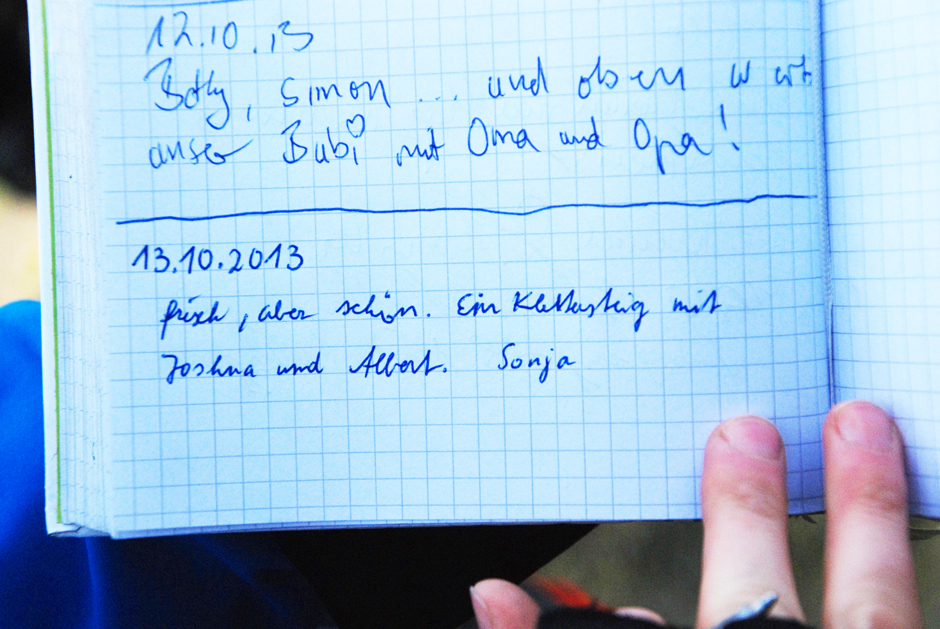 12.10.13
Betty, Simon ... und oben wart
unser Bubi mit Oma und Opa!
13.10.2013
frisch, aber schön. Ein Klettersteig mit
Joshua und Albert. Sonja